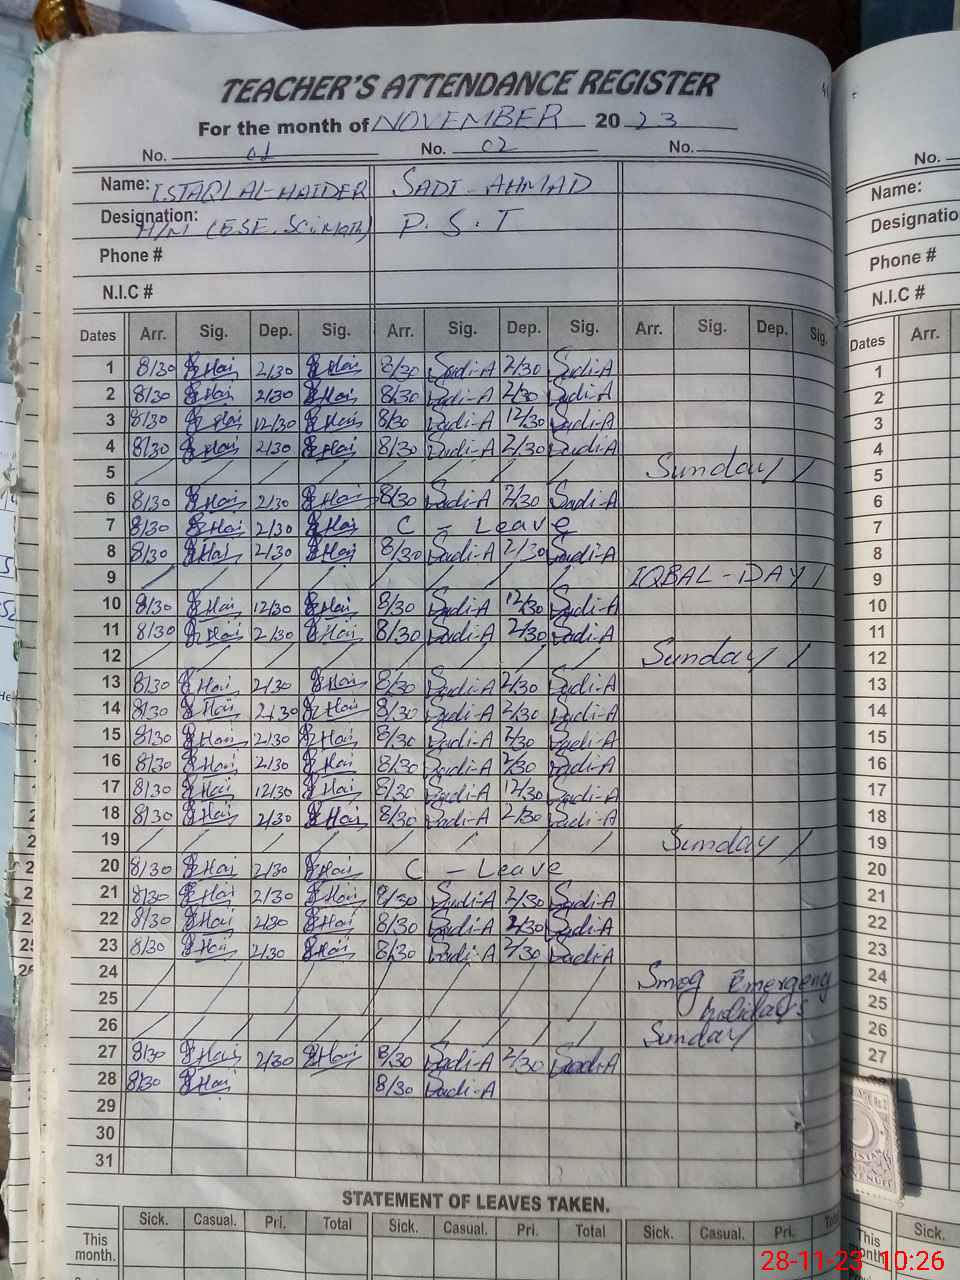 TEACHER'S ATTENDANCE REGISTER
For the month of NOVEMBER 2023
No. 01 No. 02 No.
Name: ISTAQLAL-HAIDER SADI-AHMAD
Designation: H/M (ESE.Sci.Math) P.S.T
Phone #
N.I.C #
Dates Arr. Sig. Dep. Sig. Arr. Sig. Dep. Sig. Arr. Sig. Dep. Sig.
1 8/30 Hai 2/30 Hai 8/30 Sadi-A 2/30 Sadi-A
2 8/30 Hai 2/30 Hai 8/30 Sadi-A 2/30 Sadi-A
3 8/30 Hai 12/30 Hai 8/30 Sadi-A 12/30 Sadi-A
4 8/30 Hai 2/30 Hai 8/30 Sadi-A 2/30 Sadi-A
5 Sunday
6 8/30 Hai 2/30 Hai 8/30 Sadi-A 2/30 Sadi-A
7 8/30 Hai 2/30 Hai C - Leave
8 8/30 Hai 2/30 Hai 8/30 Sadi-A 2/30 Sadi-A
9 IQBAL-DAY
10 8/30 Hai 12/30 Hai 8/30 Sadi-A 12/30 Sadi-A
11 8/30 Hai 2/30 Hai 8/30 Sadi-A 2/30 Sadi-A
12 Sunday
13 8/30 Hai 2/30 Hai 8/30 Sadi-A 2/30 Sadi-A
14 8/30 Hai 2/30 Hai 8/30 Sadi-A 2/30 Sadi-A
15 8/30 Hai 2/30 Hai 8/30 Sadi-A 2/30 Sadi-A
16 8/30 Hai 2/30 Hai 8/30 Sadi-A 2/30 Sadi-A
17 8/30 Hai 12/30 Hai 8/30 Sadi-A 12/30 Sadi-A
18 8/30 Hai 2/30 Hai 8/30 Sadi-A 2/30 Sadi-A
19 Sunday
20 8/30 Hai 2/30 Hai C - Leave
21 8/30 Hai 2/30 Hai 8/30 Sadi-A 2/30 Sadi-A
22 8/30 Hai 2/30 Hai 8/30 Sadi-A 2/30 Sadi-A
23 8/30 Hai 2/30 Hai 8/30 Sadi-A 2/30 Sadi-A
24 Smog Emergency
25 holidays
26 Sunday
27 8/30 Hai 2/30 Hai 8/30 Sadi-A 2/30 Sadi-A
28 8/30 Hai 8/30 Sadi-A
29
30
31
STATEMENT OF LEAVES TAKEN.
Sick. Casual. Pri. Total Sick. Casual. Pri. Total Sick. Casual. Pri.
This month.
No.
Name:
Designatio
Phone #
N.I.C #
Dates Arr.
1
2
3
4
5
6
7
8
9
10
11
12
13
14
15
16
17
18
19
20
21
22
23
24
25
26
27
28
Sick.
28-11-23 10:26